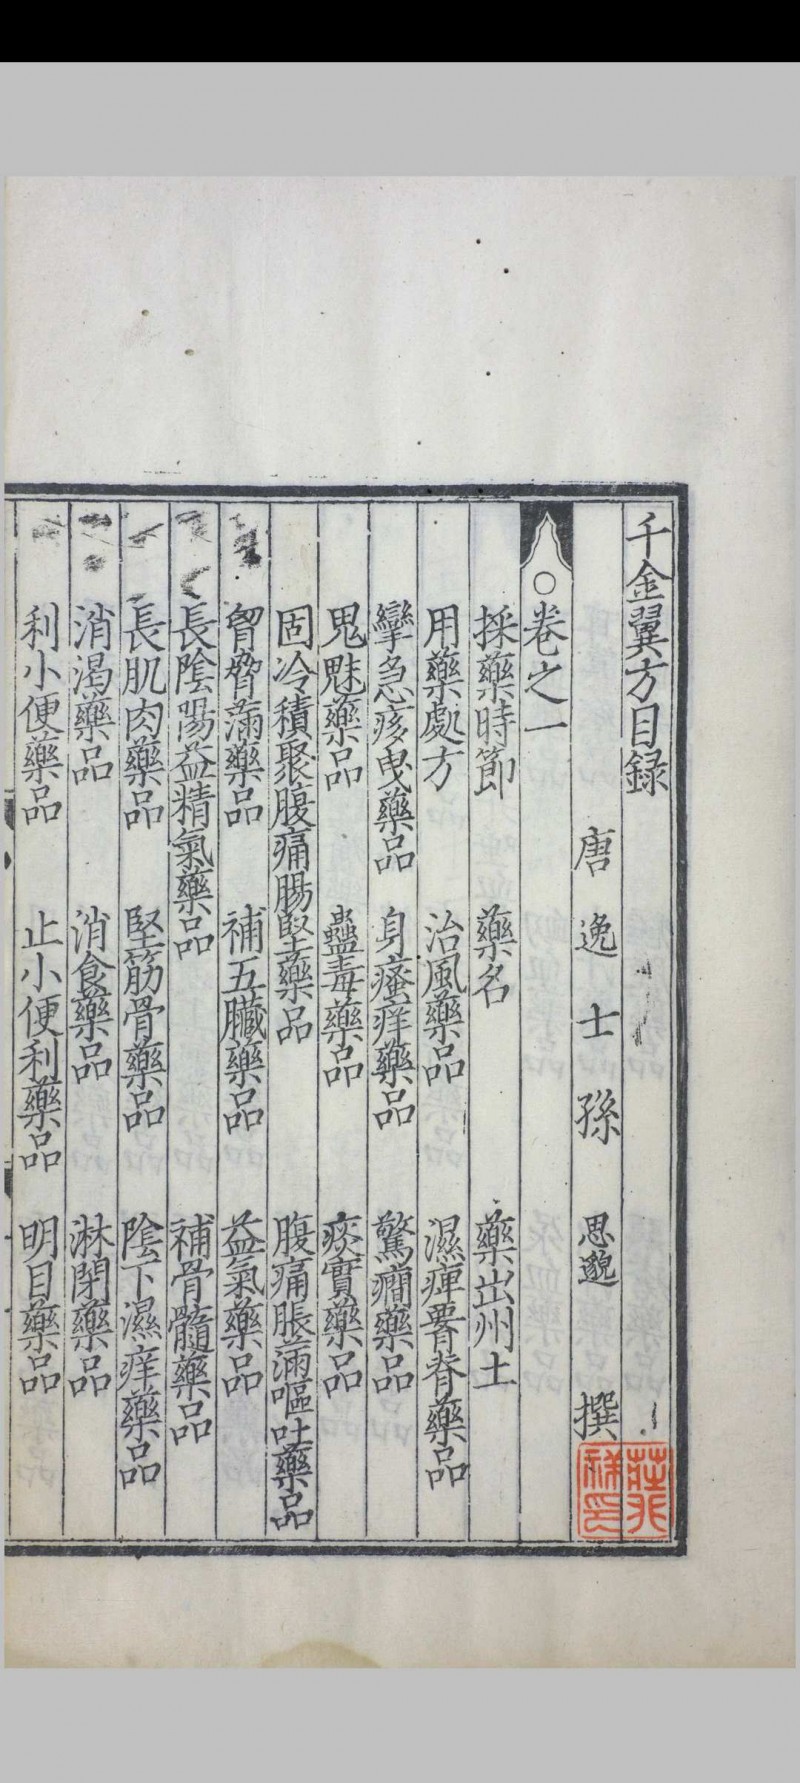 千金翼方目録
唐逸士孫思邈撰
○卷之一
採藥時節 藥名 藥出州土
用藥處方 治風藥品 濕痺胷脊藥品
攣急㾭曳藥品 身瘙痒藥品 驚癎藥品
鬼魅藥品 蠱毒藥品 痰實藥品
固冷積聚腹痛腸堅藥品 腹痛脹滿嘔吐藥品
胷脅滿藥品 補五臟藥品 益氣藥品
長陰陽益精氣藥品 補骨髓藥品
長肌肉藥品 堅筋骨藥品 陰下濕痒藥品
消渴藥品 消食藥品 淋閉藥品
利小便藥品 止小便利藥品 明目藥品